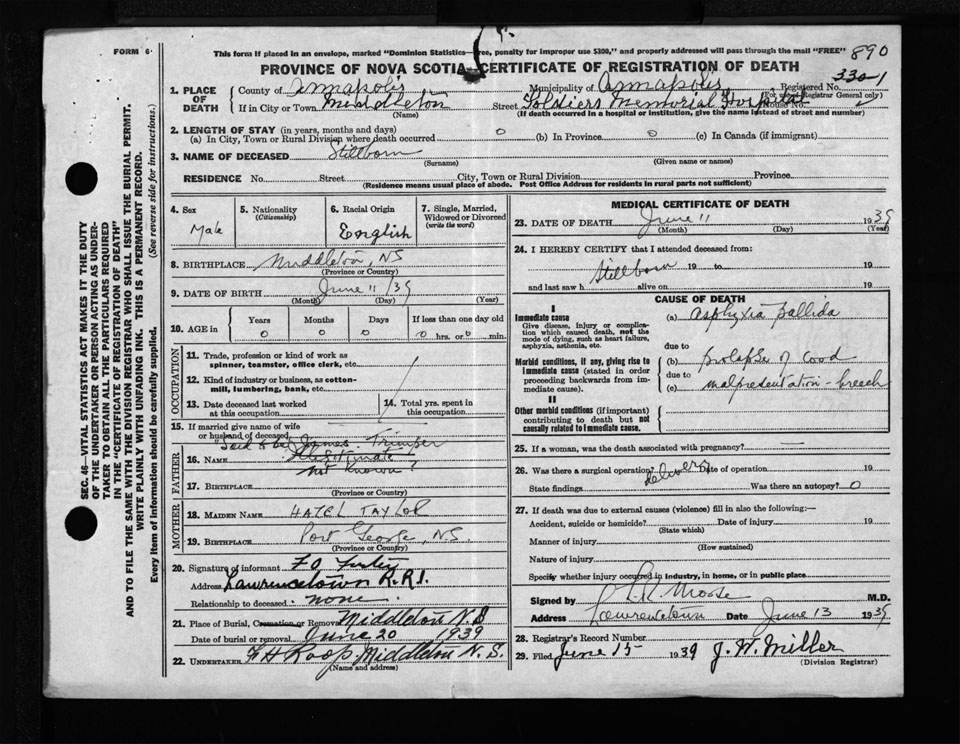 FORM 6
This form if placed in an envelope, marked "Dominion Statistics—Free, penalty for improper use $300," and properly addressed will pass through the mail "FREE"
890
PROVINCE OF NOVA SCOTIA—CERTIFICATE OF REGISTRATION OF DEATH
330-1
1. PLACE OF DEATH
County of Annapolis Municipality of Annapolis Registered No.
(For use of Registrar General only)
If in City or Town Middleton Street Soldiers Memorial Hospital House No.
(Name) (If death occurred in a hospital or institution, give the name instead of street and number)
2. LENGTH OF STAY (in years, months and days)
(a) In City, Town or Rural Division where death occurred 0 (b) In Province 0 (c) In Canada (if immigrant)
3. NAME OF DECEASED Stillborn
(Surname) (Given name or names)
RESIDENCE No. Street City, Town or Rural Division Province
(Residence means usual place of abode. Post Office Address for residents in rural parts not sufficient)
4. Sex Male
5. Nationality (Citizenship)
6. Racial Origin English
7. Single, Married, Widowed or Divorced (write the word)
8. BIRTHPLACE Middleton, NS
(Province or Country)
9. DATE OF BIRTH June 11/39
(Month) (Day) (Year)
10. AGE in Years Months Days If less than one day old
0 0 0 0 hrs. or 0 min.
OCCUPATION
11. Trade, profession or kind of work as spinner, teamster, office clerk, etc.
12. Kind of industry or business, as cotton-mill, lumbering, bank, etc.
13. Date deceased last worked at this occupation
14. Total yrs. spent in this occupation
15. If married give name of wife or husband of deceased
Said to be James Trimper
FATHER
16. NAME Illegitimate
not known
17. BIRTHPLACE
(Province or Country)
MOTHER
18. MAIDEN NAME HAZEL TAYLOR
19. BIRTHPLACE Port George, NS
(Province or Country)
20. Signature of informant F O
Address Lawrencetown R.R.1.
Relationship to deceased none.
21. Place of Burial, Cremation or Removal Middleton N.S
Date of burial or removal June 20 1939
22. UNDERTAKER F H Roop Middleton N.S.
(Name and address)
MEDICAL CERTIFICATE OF DEATH
23. DATE OF DEATH June 11 1939
(Month) (Day) (Year)
24. I HEREBY CERTIFY that I attended deceased from:
Stillborn 19 to 19
and last saw h alive on 19
CAUSE OF DEATH
I
Immediate cause (a) Asphyxia Pallida
Give disease, injury or complication which caused death, not the mode of dying, such as heart failure, asphyxia, asthenia, etc.
due to
Morbid conditions, if any, giving rise to immediate cause (stated in order proceeding backwards from immediate cause).
(b) Prolapse of cord
due to
(c) malpresentation - breech
II
Other morbid conditions (if important) contributing to death but not causally related to immediate cause.
25. If a woman, was the death associated with pregnancy?
26. Was there a surgical operation? delivery Date of operation 19
State findings Was there an autopsy? 0
27. If death was due to external causes (violence) fill in also the following:—
Accident, suicide or homicide? Date of injury 19
(State which)
Manner of injury
(How sustained)
Nature of injury
Specify whether injury occurred in industry, in home, or in public place
Signed by L.R. Morse M.D.
Address Lawrencetown Date June 13 1939
28. Registrar's Record Number
29. Filed June 15 1939 J. W. Miller
(Division Registrar)
SEC. 46—VITAL STATISTICS ACT MAKES IT THE DUTY
OF THE UNDERTAKER OR PERSON ACTING AS UNDERTAKER TO OBTAIN ALL THE PARTICULARS REQUIRED
IN THE "CERTIFICATE OF REGISTRATION OF DEATH"
AND TO FILE THE SAME WITH THE DIVISION REGISTRAR WHO SHALL ISSUE THE BURIAL PERMIT.
WRITE PLAINLY WITH UNFADING INK. THIS IS A PERMANENT RECORD.
Every item of information should be carefully supplied. (See reverse side for instructions.)